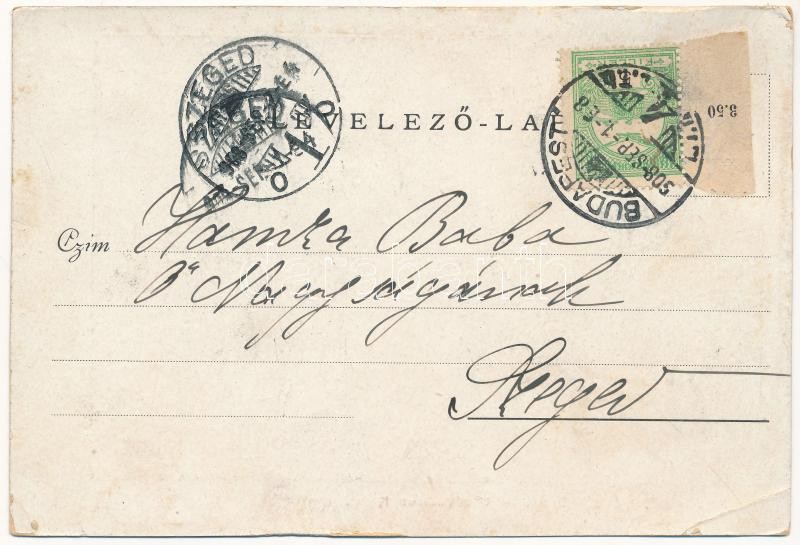 SZEGED
LEVELEZŐ-LA
3.50
BUDAPEST
908 SEP.
Czim
Hamza Baba
Ő Nagyságának
Szeged